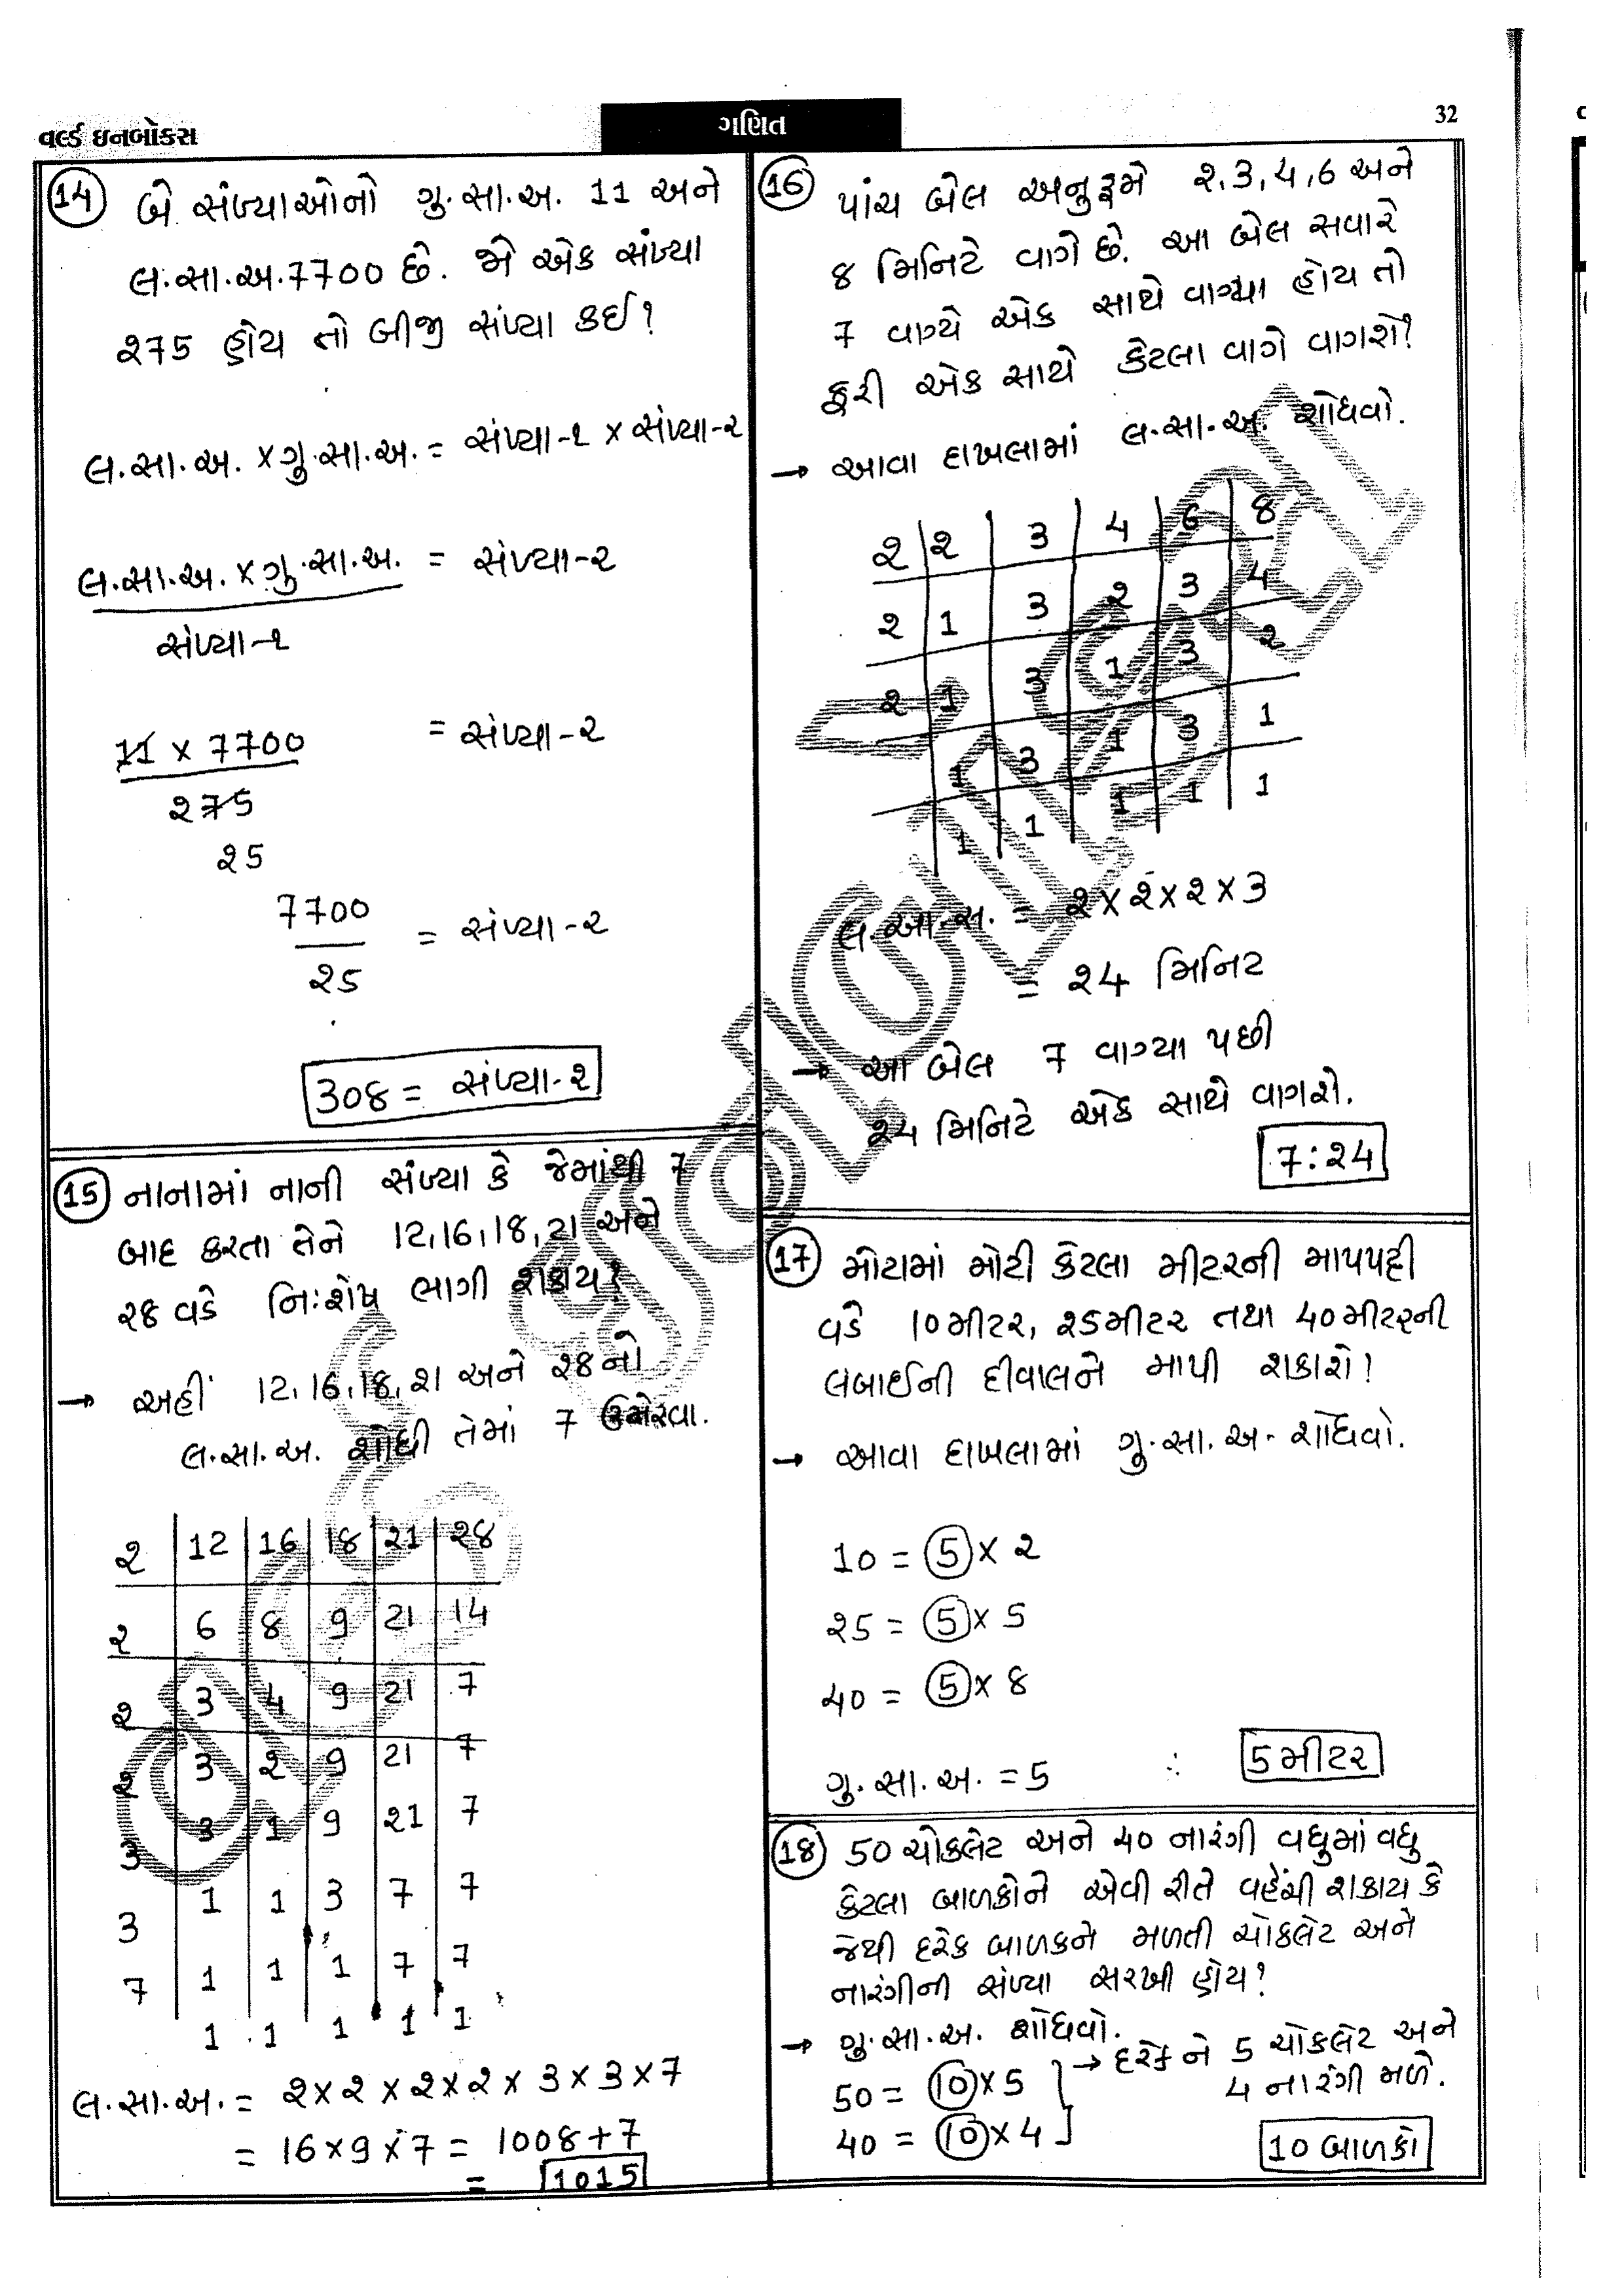 વર્લ્ડ ઇનબોક્સ
ગણિત
32
14 બે સંખ્યાઓનો ગુ.સા.અ. 11 અને
લ.સા.અ. 7700 છે. જો એક સંખ્યા
૨75 હોય તો બીજી સંખ્યા કઈ?
લ.સા.અ. x ગુ.સા.અ. = સંખ્યા-૧ x સંખ્યા-૨
લ.સા.અ. x ગુ.સા.અ. = સંખ્યા-૨
સંખ્યા-૧
11 x 7700 = સંખ્યા-૨
૨75
૨5
7700 = સંખ્યા-૨
૨5
30૪ = સંખ્યા-૨
15 નાનામાં નાની સંખ્યા કે જેમાંથી 7
બાદ કરતા તેને 12,16,18,21 અને
૨૪ વડે નિઃશેષ ભાગી શકાય?
→ અહીં 12,16,18,૨1 અને ૨૪ નો
લ.સા.અ. શોધી તેમાં 7 ઉમેરવા.
૨ 12 16 1૪ 21 ૨૪
૨ 6 ૪ 9 21 14
૨ 3 4 9 21 7
૨ 3 ૨ 9 21 7
3 3 1 9 21 7
3 1 1 3 7 7
7 1 1 1 7 7
1 1 1 1 1
લ.સા.અ. = ૨ x ૨ x ૨ x ૨ x 3 x 3 x 7
= 16 x 9 x 7 = 100૪ + 7
= 1015
16 પાંચ બેલ અનુક્રમે ૨,3,4,6 અને
૪ મિનિટે વાગે છે. આ બેલ સવારે
7 વાગ્યે એક સાથે વાગ્યા હોય તો
ફરી એક સાથે કેટલા વાગે વાગશે?
→ આવા દાખલામાં લ.સા.અ. શોધવો.
૨ ૨ 3 4 6 ૪
૨ 1 3 ૨ 3 4
૨ 1 3 1 3 ૨
1 3 1 3 1
1 1 1 1 1
લ.આ.સ. = ૨ x ૨ x ૨ x 3
= ૨4 મિનિટ
→ આ બેલ 7 વાગ્યા પછી
૨4 મિનિટે એક સાથે વાગશે.
7:૨4
17 મોટામાં મોટી કેટલા મીટરની માપપટ્ટી
વડે 10 મીટર, ૨5 મીટર તથા 40 મીટરની
લબાઈની દીવાલને માપી શકાશે?
→ આવા દાખલામાં ગુ.સા.અ. શોધવો.
10 = 5 x ૨
૨5 = 5 x 5
40 = 5 x 8
ગુ.સા.અ. = 5 ∴ 5 મીટર
18 50 ચોકલેટ અને 40 નારંગી વધુમાં વધુ
કેટલા બાળકોને એવી રીતે વહેંચી શકાય કે
જેથી દરેક બાળકને મળતી ચોકલેટ અને
નારંગીની સંખ્યા સરખી હોય?
→ ગુ.સા.અ. શોધવો.
50 = 10 x 5 → દરેક ને 5 ચોકલેટ અને
40 = 10 x 4 4 નારંગી મળે.
10 બાળકો